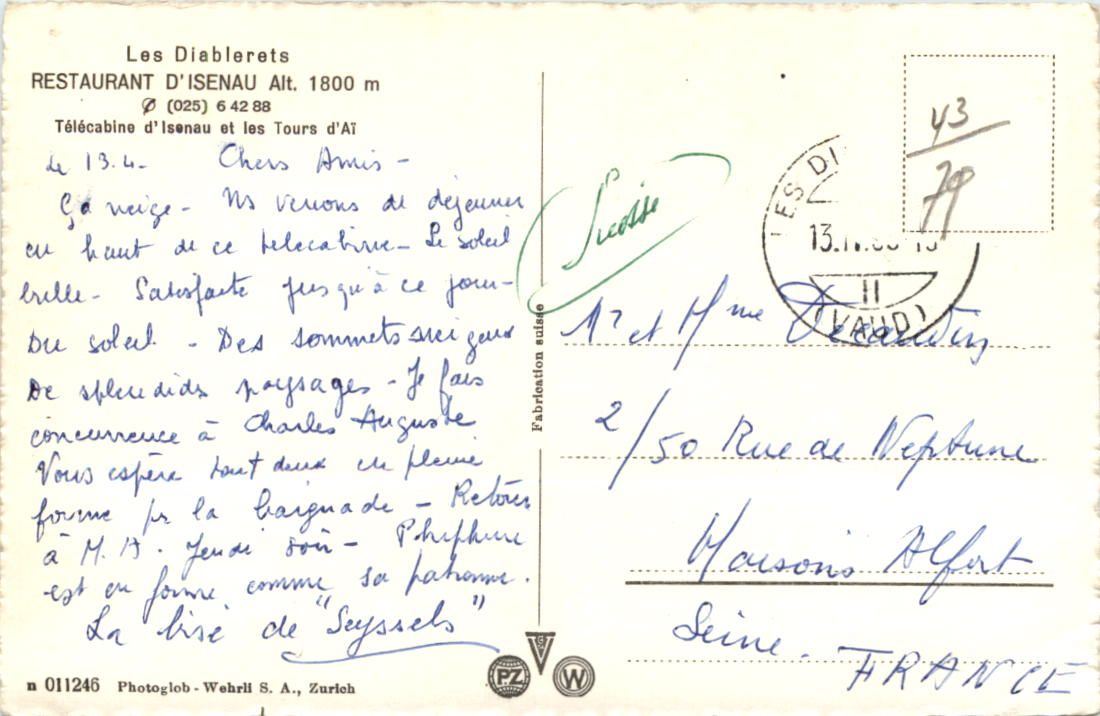 Les Diablerets
RESTAURANT D'ISENAU Alt. 1800 m
(025) 6 42 88
Télécabine d'Isenau et les Tours d'Aï
le 13.4- Chers Amis -
Ça neige - Ns venons de déjeuner
en haut de ce telecabine - Le soleil
brille - Satisfaite jusqu'à ce jour -
Du soleil - Des sommets neigeux
De splendides paysages - Je fais
concurrence à Charles Auguste
Vous espère tout deux en pleine
forme pr la baignade - Retour
à M. A. Jeudi soir -
est en forme comme sa patronne.
La bise de "Seyssels"
n 011246 Photoglob - Wehrli S. A., Zurich
Fabrication suisse
PZ
W
Suisse
43
79
LES DI
13.IV.
II
(VAUD)
Mr et Mme
2/50 Rue de Neptune
Maisons Alfort
Seine.
FRANCE